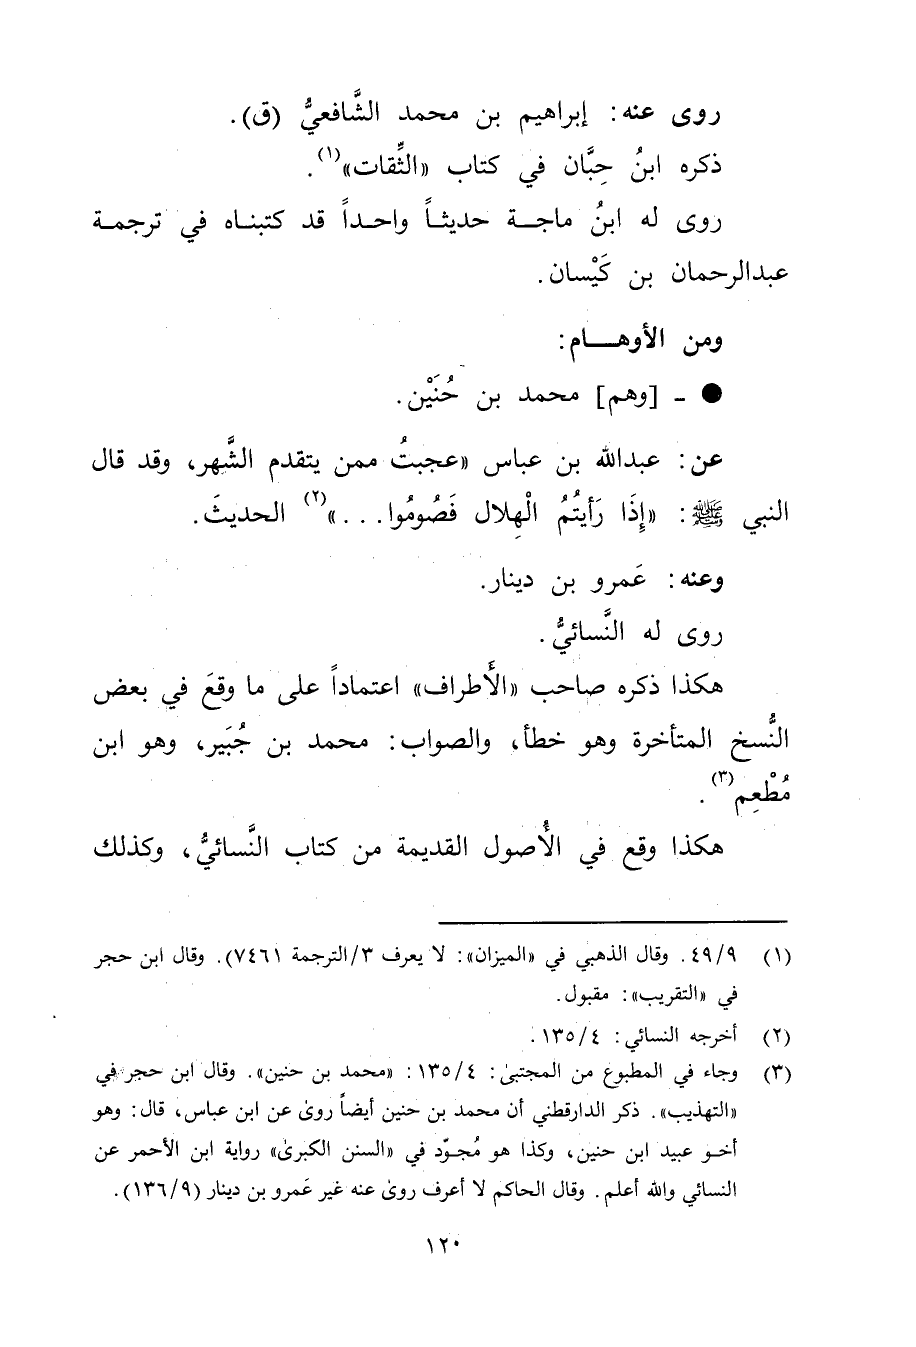 روى عنه: إبراهيم بن محمد الشَّافعيُّ (ق).
ذكره ابنُ حِبَّان في كتاب «الثِّقات»(١).
روى له ابنُ ماجة حديثاً واحداً قد كتبناه في ترجمة
عبدالرحمان بن كَيْسان.
ومن الأوهام:
● - [وهم] محمد بن حُنَيْن.
عن: عبدالله بن عباس «عجبتُ ممن يتقدم الشَّهر، وقد قال
النبي ﷺ: «إِذَا رَأيتُمُ الْهِلال فَصُومُوا...»(٢) الحديثَ.
وعنه: عَمرو بن دينار.
روى له النَّسائيُّ.
هكذا ذكره صاحب «الأَطراف» اعتماداً على ما وقعَ في بعض
النُّسخ المتأخرة وهو خطأ، والصواب: محمد بن جُبَير، وهو ابن
مُطْعِم(٣).
هكذا وقع في الأُصول القديمة من كتاب النَّسائيُّ، وكذلك
(١) ٤٩/٩. وقال الذهبي في «الميزان»: لا يعرف ٣/الترجمة ٧٤٦١). وقال ابن حجر
في «التقريب»: مقبول.
(٢) أخرجه النسائي: ١٣٥/٤.
(٣) وجاء في المطبوع من المجتبىٰ: ١٣٥/٤: «محمد بن حنين». وقال ابن حجر في
«التهذيب». ذكر الدارقطني أن محمد بن حنين أيضاً روىٰ عن ابن عباس، قال: وهو
أخو عبيد ابن حنين، وكذا هو مُجوّد في «السنن الكبرىٰ» رواية ابن الأحمر عن
النسائي والله أعلم. وقال الحاكم لا أعرف روىٰ عنه غير عَمرو بن دينار (١٣٦/٩).
١٢٠